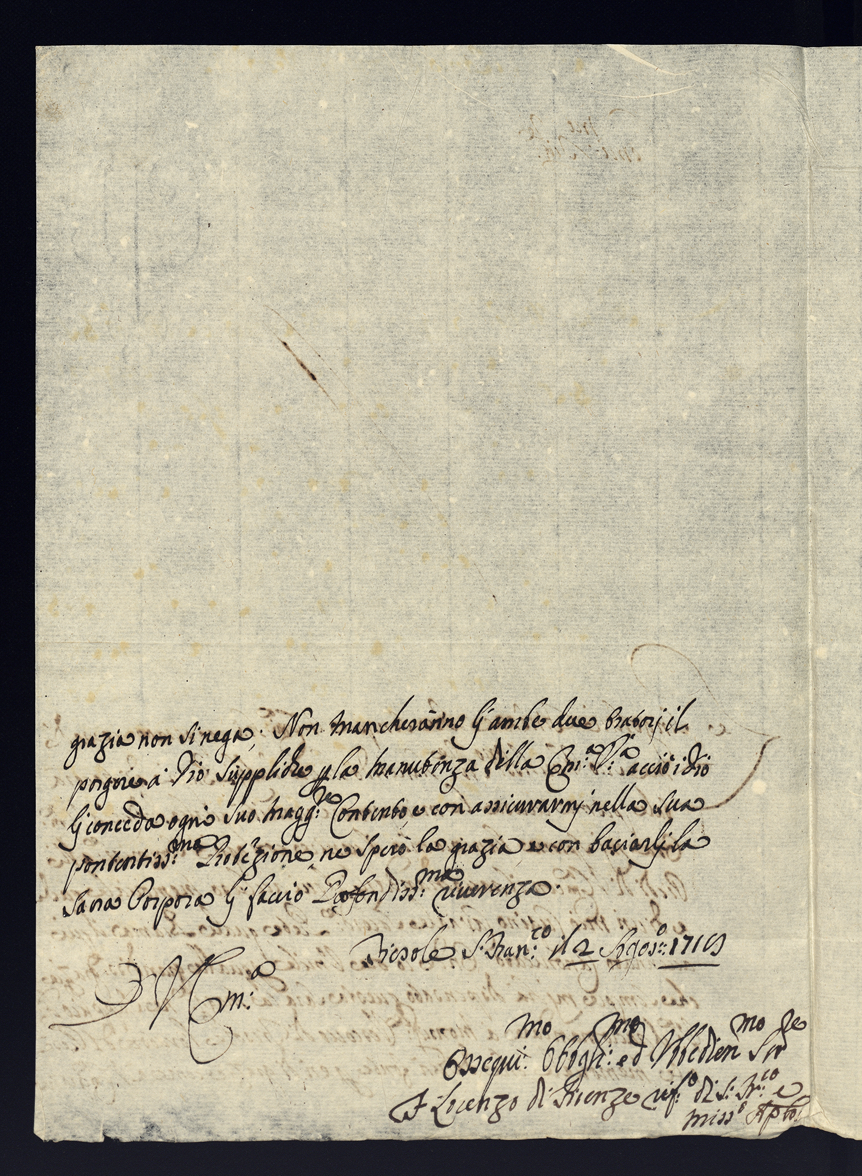 grazia non si nega; Non mancheranno gl'ambe due Oratorj il
porgere à Dio Suppliche p la manutenza della Em.ª V.ª acciò idio
gl'conceda ogni suo magg.re Contento, e con assicurarmj nella sua
pontentiss:ma Protezione, ne spero la grazia, e con baciarlj la
Sacra Porpora gl'faccio Profondiss:ma riverenza.
Fiesole S. Fran:co il 2 Agos:o 1716
D V Em:ª
Ossequi:mo Obbgli:mo ed Vbbedien:mo Ser.re
F Lorenzo di Firenze rif:o di S: Fr:co e
miss:o Apto: